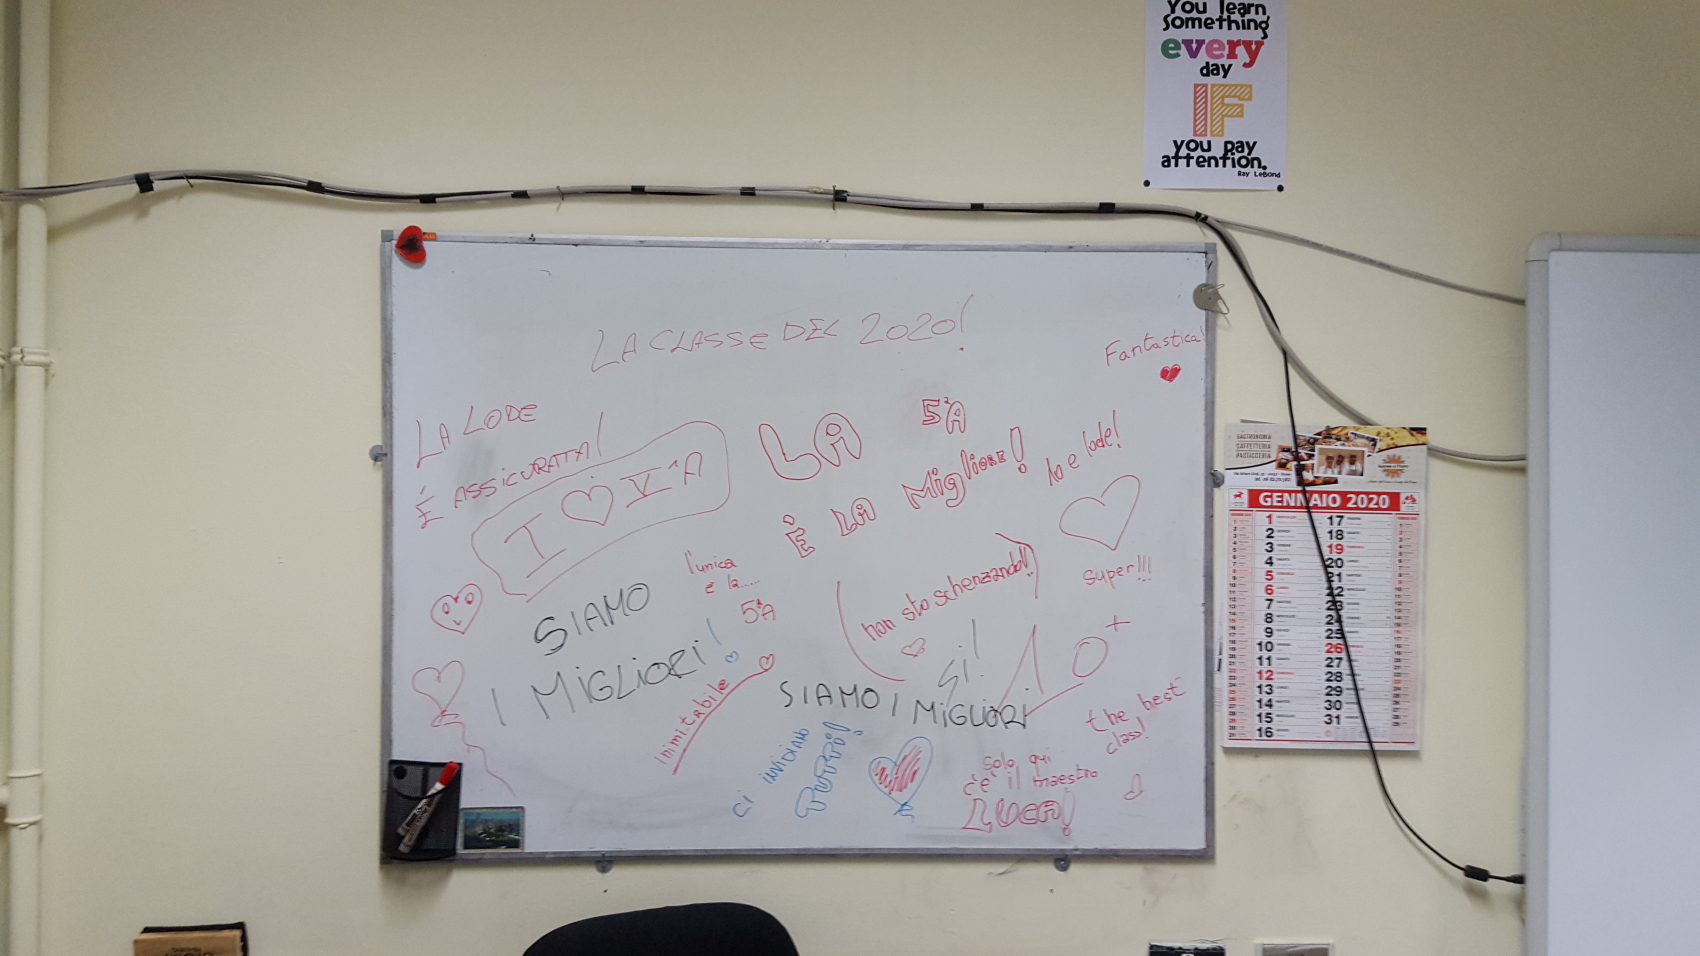 You learn
something
every
day
IF
you pay
attention.
Ray LeBond
LA CLASSE DEL 2020!
Fantastica!
LA LODE
È ASSICURATA!
I ♡ VªA
LA
5ªA
È LA MIGLIORE!
10 e lode!
l'unica
è la....
5ªA
non sto scherzando!!
super!!!
SIAMO
I MIGLIORI!
inimitabile
SI!
10+
SIAMO I MIGLIORI
the best
class!
CI INVIDIANO
TUTTI!
Solo qui
c'è il maestro
LUCA!
GASTRONOMIA
CAFFETTERIA
PASTICCERIA
GENNAIO 2020
1 17
2 18
3 19
4 20
5 21
6 22
7 23
8 24
9 25
10 26
11 27
12 28
13 29
14 30
15 31
16